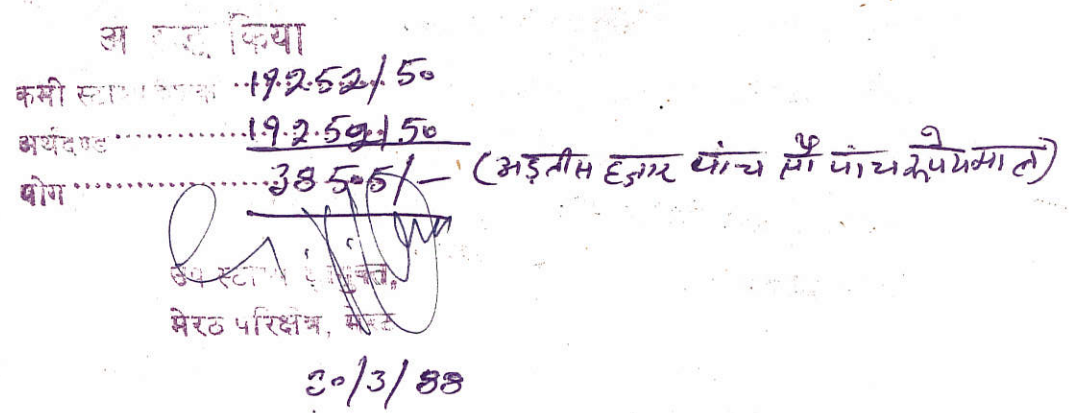 अ किया
कमी स्टा 19252/50
अर्थदण्ड 19252/50
योग 38505/- (अड़तीस हजार पांच सौ पांच रूपये मात्र)
उप स्टा युक्त,
मेरठ परिक्षेत्र, मेरठ
20/3/88